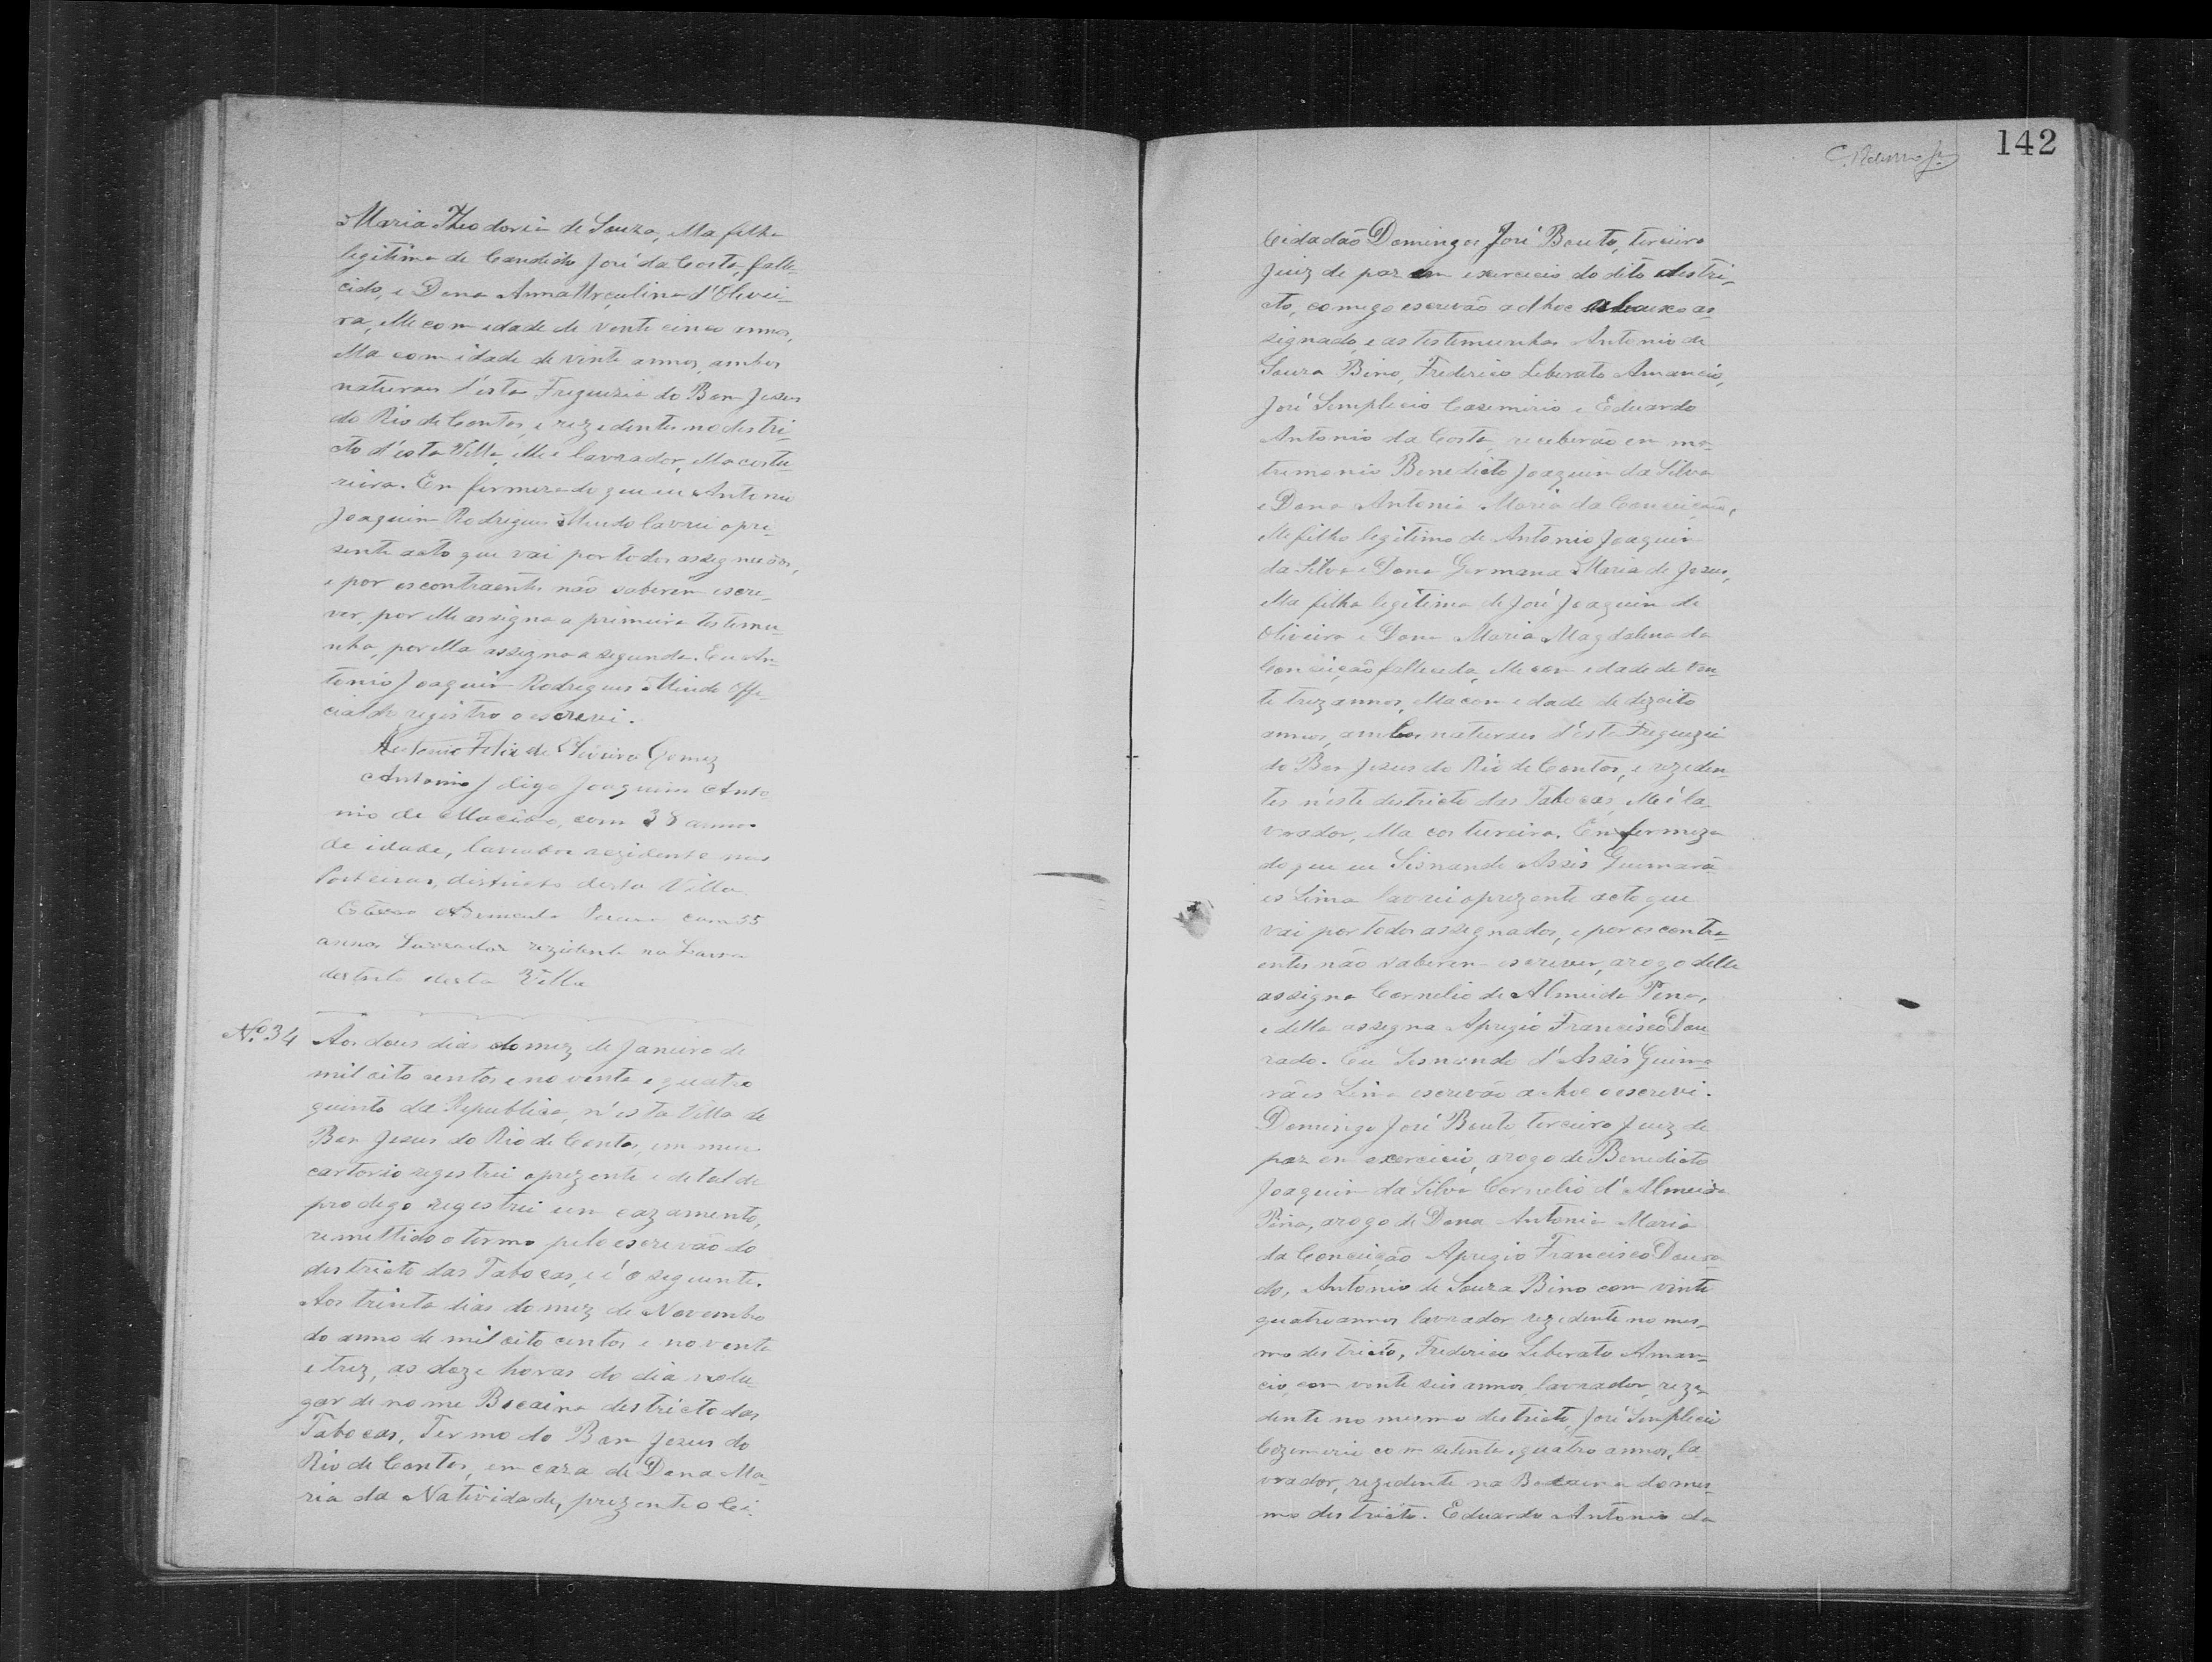 Maria Theodoria de Souza, ella filha
legitima de Candido José da Costa, falle-
cido, e Dona Anna Urculina d'Olivei-
ra, elle com edade de vente cinco annos,
ella com idade de vinte annos, ambos
naturaes d'esta Freguezia do Bom Jesus
do Rio de Contas, e rezedentes no destri-
cto d'esta Villa, elle é lavrador, ella costu-
reira. Em firmeza do que eu Antonio
Joaquim Rodrigues Mendo lavrei o pre-
sente acto que vai por todos assegnados,
e por os contraentes não saberem escre-
ver, por elle assigna a primeira testemu-
nha, por ella assigna a segunda. Eu An-
tonio Joaquim Rodrigues Mendo Offi-
cial do registro o escrevi.
Antonio Felix de Oliveira Gomez
Antonio J digo Joaquim Anto
nio de Macêdo, com 38 annos
de idade, lavrador rezidente nas
Porteiras, districto desta Villa.
Pereira com 55
annos Lavrador rezidente na Lavra
destrito desta Villa
Nº 34 Aos dous dias do mez de Janeiro de
mil oito centos e noventa e quatro
quinto da Republica, n'esta Villa de
Bom Jesus do Rio de Contas, em meu
cartorio registrei o prezente e detal de
pro dego regestrei um cazamento,
remettido o termo pelo escrevão do
destricto das Tabocas, e é o seguente.
Aos trinta dias do mez de Novembro
do anno de mil oito centos e noventa
e trez, as doze horas do dia no lu-
gar de nome Bocaina destricto das
Tabocas, Termo do Bom Jesus do
Rio de Contas, em caza de Dona Ma-
ria da Natividade, prezente o Ci-
142
Cidadão Domingos José Bouto, terceiro
Juiz de paz em exercicio do dito destri-
cto, comigo escrevão ad hoc abaixo as
signado, e as testemunhas Antonio de
Souza Bino, Frederico Leberato Amancio,
José Semplicio Casemirio e Eduardo
Antonio da Costa, receberão em ma-
tremonio Benedicto Joaquim da Silva
e Dona Antonia Maria da Conceição,
elle filho legitimo de Antonio Joaquim
da Silva e Dona Germana Maria de Jesus,
ella filha legitima de José Joaquim de
Oliveira e Dona Maria Magdalena da
Conceição fallecida, elle com edade de ven-
te trez annos, ella com edade de dezoito
annos, ambos naturaes d'esta Freguezia
do Bom Jesus do Rio de Contas, e rezeden-
tes n'este destricto das Tabocas, elle é la-
vrador, ella costureira. Em fermeza
do que eu Sisnando Assis Guimarã
es Lima lavrei o prezente acto que
vai por todos assegnados, e por os contra-
entes não saberem escrever, arogo delle
assigna Cornelio de Almeida Pina,
e della assegna Aprigio Francisco Dou
rado. Eu Sesnando d'Assis Guima-
rães Lima escrevão ad hoc o escrevi.
Domingo José Bouto terceiro Juiz de
paz em exercicio, arogo de Benedicto
Joaquim da Silva Cornelio d'Almeida
Pina, arogo de Dona Antonia Maria
da Conceição Aprigio Francisco Doura
do, Antonio de Souza Bino com vinte
quatro annos lavrador rezedente no mes-
mo destricto, Frederico Leberato Aman-
cio, com vente seis annos, lavrador, reze-
dente no mesmo destricto, José Semplicio
Cazemerio com setenta e quatro annos, la-
vrador, rezedente na Bocaina do mes-
mo destricto. Eduardo Antonio da